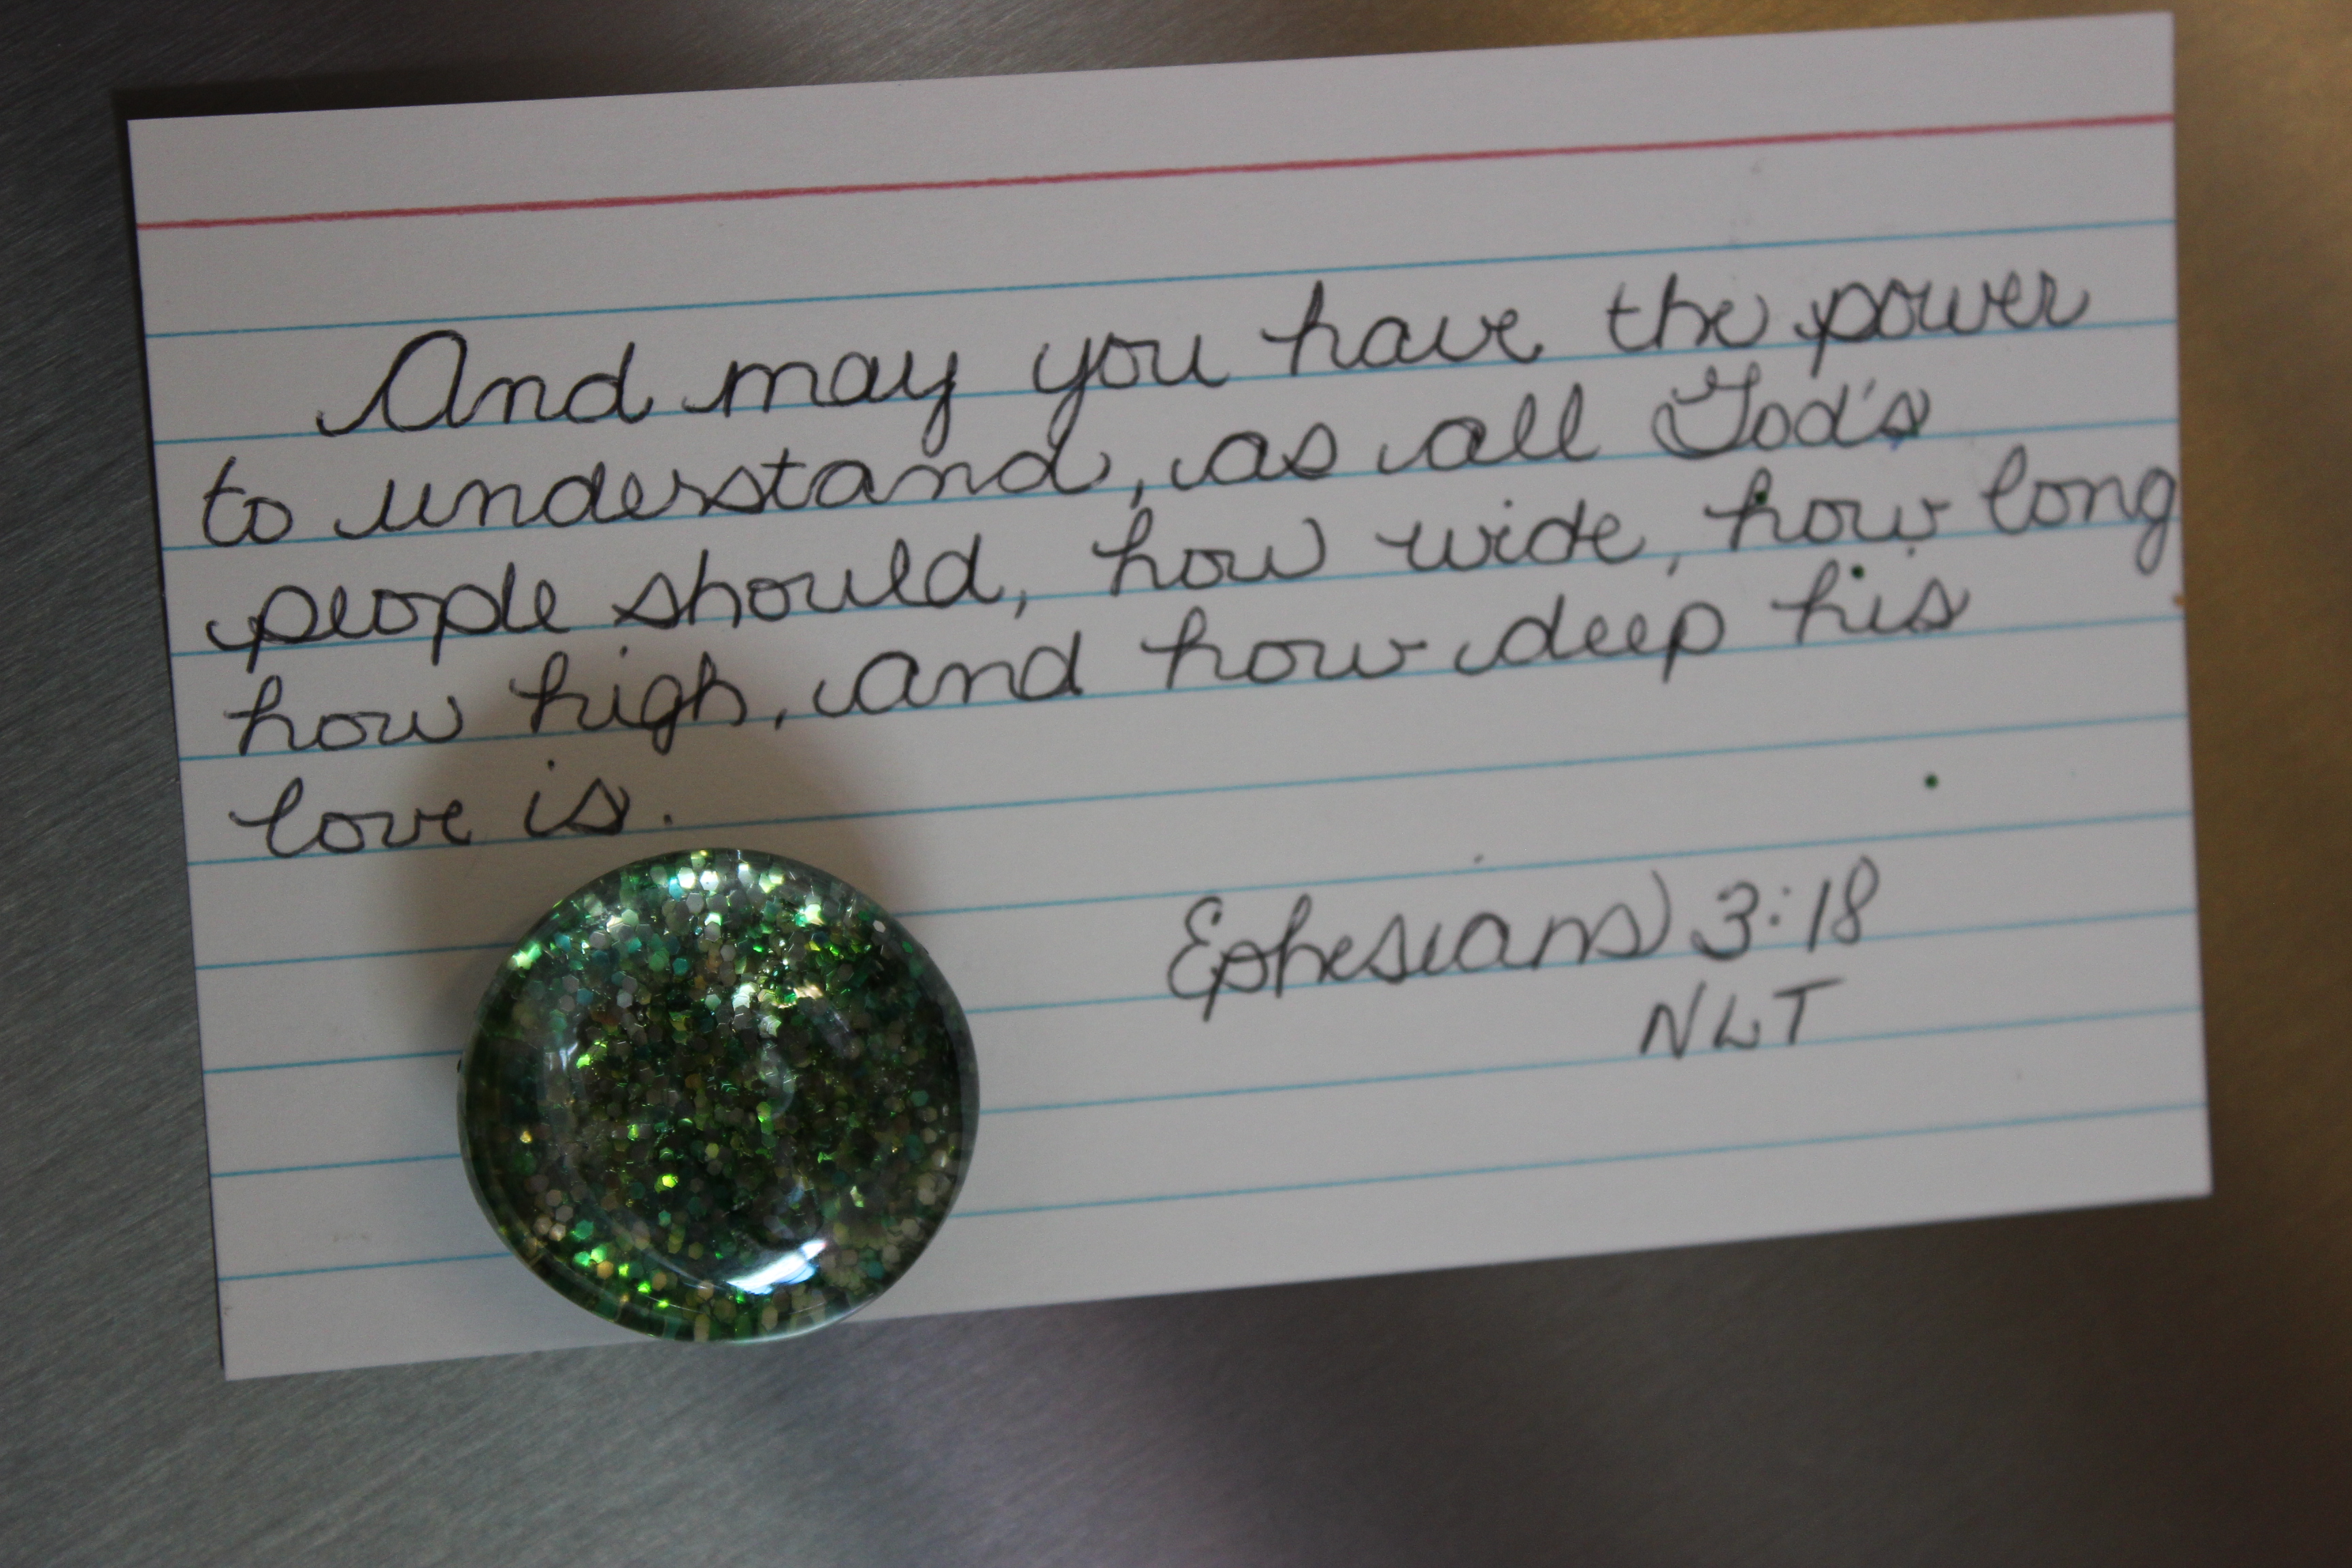 And may you have the power
to understand, as all God's
people should, how wide, how long
how high, and how deep his
love is.
Ephesians 3:18
NLT